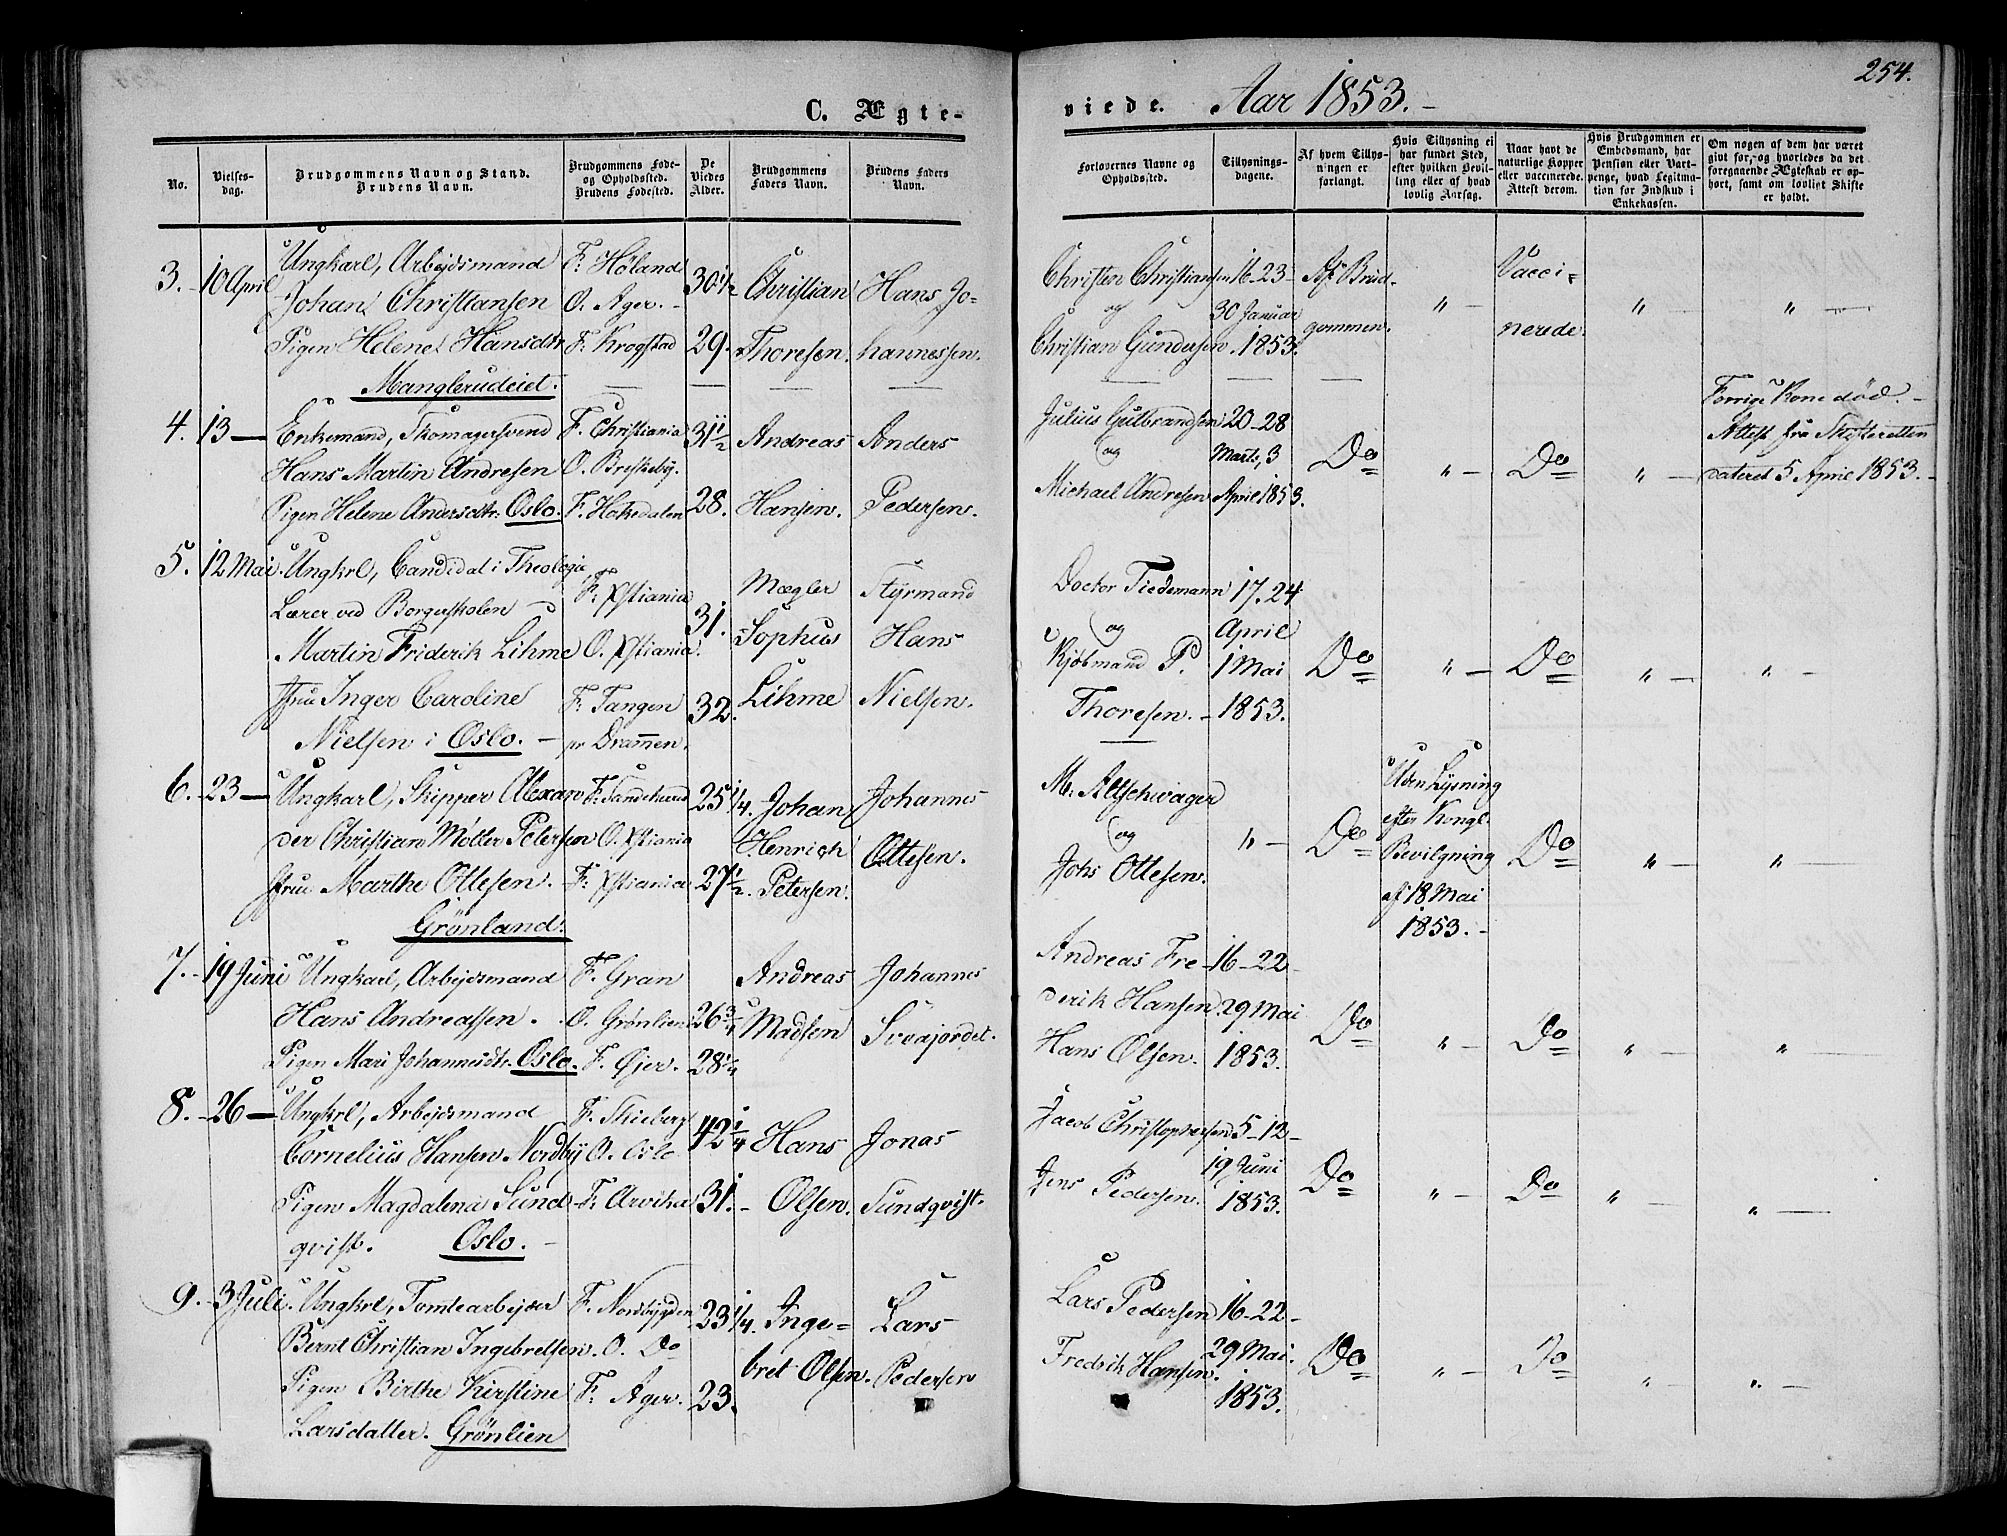 254.
C. Ægte-
viede. Aar 1853.
No.
Vielses-
dag.
Brudgommens Navn og Stand.
Brudens Navn.
Brudgommens Føde-
og Opholdssted.
Brudens Fødested.
De
Viedes
Alder.
Brudgommens
Faders Navn.
Brudens Faders
Navn.
Forlovernes Navne og
Opholdssted.
Tillysnings-
dagene.
Af hvem Tillys-
ningen er
forlangt.
Hvis Tillysning ei
har fundet Sted,
efter hvilken Bevil-
ling eller af hvad
lovlig Aarsag.
Naar havt de
naturlige Kopper
eller vaccinerede.
Attest derom.
Hvis Brudgommen er
Embedsmand, har
Pension eller Vart-
penge, hvad Legitima-
tion for Indskud i
Enkekassen.
Om nogen af dem har været
givt for, og hvorledes da det
foregaaende Ægteskab er op-
hørt, samt om lovligt Skifte
er holdt.
3. 10 April
Ungkarl, Arbejdsmand
Johan Christiansen
Pigen Helene Hansdtr
Manglerudeiet.
F. Høland
O. Ager.
F. Krogstad
30 1/2
29.
Christian
Thoresen.
Hans Jo-
hannessen.
Christen Christiansen
og
Christian Gundersen.
16-23-
30 Januar
1853.
Af Brud-
gommen.
" -
Vacci-
nerede.
" -
" -
4. 13 —
Enkemand, Skomagersvend
Hans Martin Andresen
Pigen Helene Andersdtr. Oslo.
F. Christiania
O. Briskeby.
F. Hakedalen
31 1/2
28.
Andreas
Hansen.
Anders
Pedersen.
Julius Gulbrandsen
og
Michael Andresen
20-28
Marts, 3
April 1853.
Do
" -
Do
" -
Forrige Kone død.
Attest fra Skifteretten
dateret 5 April 1853.
5. 12 Mai
Ungkrl, Candidat i Theologi,
Lærer ved Borgerskolen
Martin Friderik Lihme
Jfru Inger Caroline
Nielsen i Oslo.
F. Xstiania
O. Xstiania.
F. Tangen
pr Drammen.
31.
32.
Mægler
Sophus
Lihme
Styrmand
Hans
Nielsen.
Doctor Tiedemann
og
Kjøbmand P.
Thoresen.
17. 24
April
1 Mai
1853.
Do
" -
Do
" -
" -
6. 23 —
Ungkarl, Skipper Alexan-
der Christian Møller Petersen
Jfru Marthe Ottesen.
Grønland.
F. Sandesund
O. Xstiania
F. Xstiania.
25 1/4.
27 1/2.
Johan
Henrich
Petersen.
Johannes
Ottesen.
M. Altschwager
og
Johs Ottesen.
" -
Do
Uden Lysning
efter Kongl.
Bevilgning
af 18 Mai
1853.
Do
" -
" -
7. 19 Juni
Ungkarl, Arbejdsmand
Hans Andreassen.
Pigen Mari Johannesdtr. Oslo.
F. Gran
O. Grønlien
F. Øjer.
26 3/4
28 1/4
Andreas
Madsen
Johannes
Sveajordet.
Andreas Fre-
derik Hansen
Hans Olsen.
16-22-
29 Mai
1853.
Do
" -
Do
" -
" -
8. 26 —
Ungkrl, Arbejdsmand
Cornelius Hansen Nordby
Pigen Magdalena Sund-
qvist. Oslo.
F. Skieberg
O. Oslo
F. Arvika
42 1/4
31.
Hans
Olsen.
Jonas
Sundqvist.
Jacob Christophersen
Jens Pedersen.
5-12-
19 Juni
1853.
Do
" -
Do
" -
" -
9. 3 Juli.
Ungkrl, Tomtearbejder
Bernt Christian Ingebretsen.
Pigen Birthe Kirstine
Larsdatter. Grønlien
F. Nordbygden
O. Do
F. Ager.
23 1/4.
23.
Inge-
bret Olsen.
Lars
Pedersen
Lars Pedersen
Fredrik Hansen.
16-22-
29 Mai.
1853.
Do
" -
Do
" -
" -